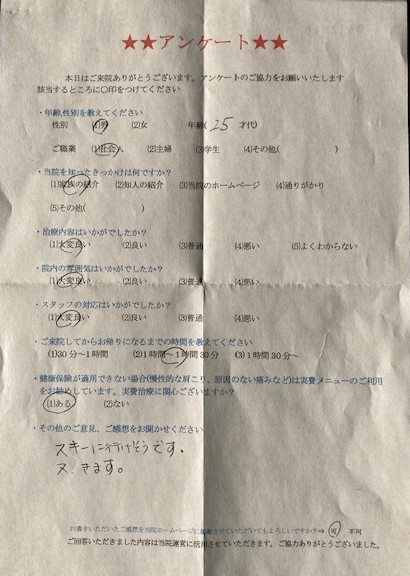 ★★アンケート★★
本日はご来院ありがとうございます。アンケートのご協力をお願いいたします
該当するところに〇印をつけてください
・年齢,性別を教えてください
性別 (1)男 (2)女 年齢( 25 才代)
ご職業 (1)社会人 (2)主婦 (3)学生 (4)その他( )
・当院を知ったきっかけは何ですか?
(1)家族の紹介 (2)知人の紹介 (3)当院のホームページ (4)通りがかり
(5)その他( )
・治療内容はいかがでしたか?
(1)大変良い (2)良い (3)普通 (4)悪い (5)よくわからない
・院内の雰囲気はいかがでしたか?
(1)大変良い (2)良い (3)普通 (4)悪い
・スタッフの対応はいかがでしたか?
(1)大変良い (2)良い (3)普通 (4)悪い
・ご来院してからお帰りになるまでの時間を教えてください
(1)30分~1時間 (2)1時間~1時間30分 (3)1時間30分~
・健康保険が適用できない場合(慢性的な肩こり、原因のない痛みなど)は実費メニューのご利用
をお勧めしています。実費治療に関心ございますか?
(1)ある (2)ない
・その他のご意見、ご感想をお聞かせください
スキーに行けそうです.
又、きます。
お書きいただいたご感想を当院ホームページに掲載させていただいてもよろしいですか?⇒ 可 不可
ご回答いただきました内容は当院運営に活用させていただきます。ご協力ありがとうございました。